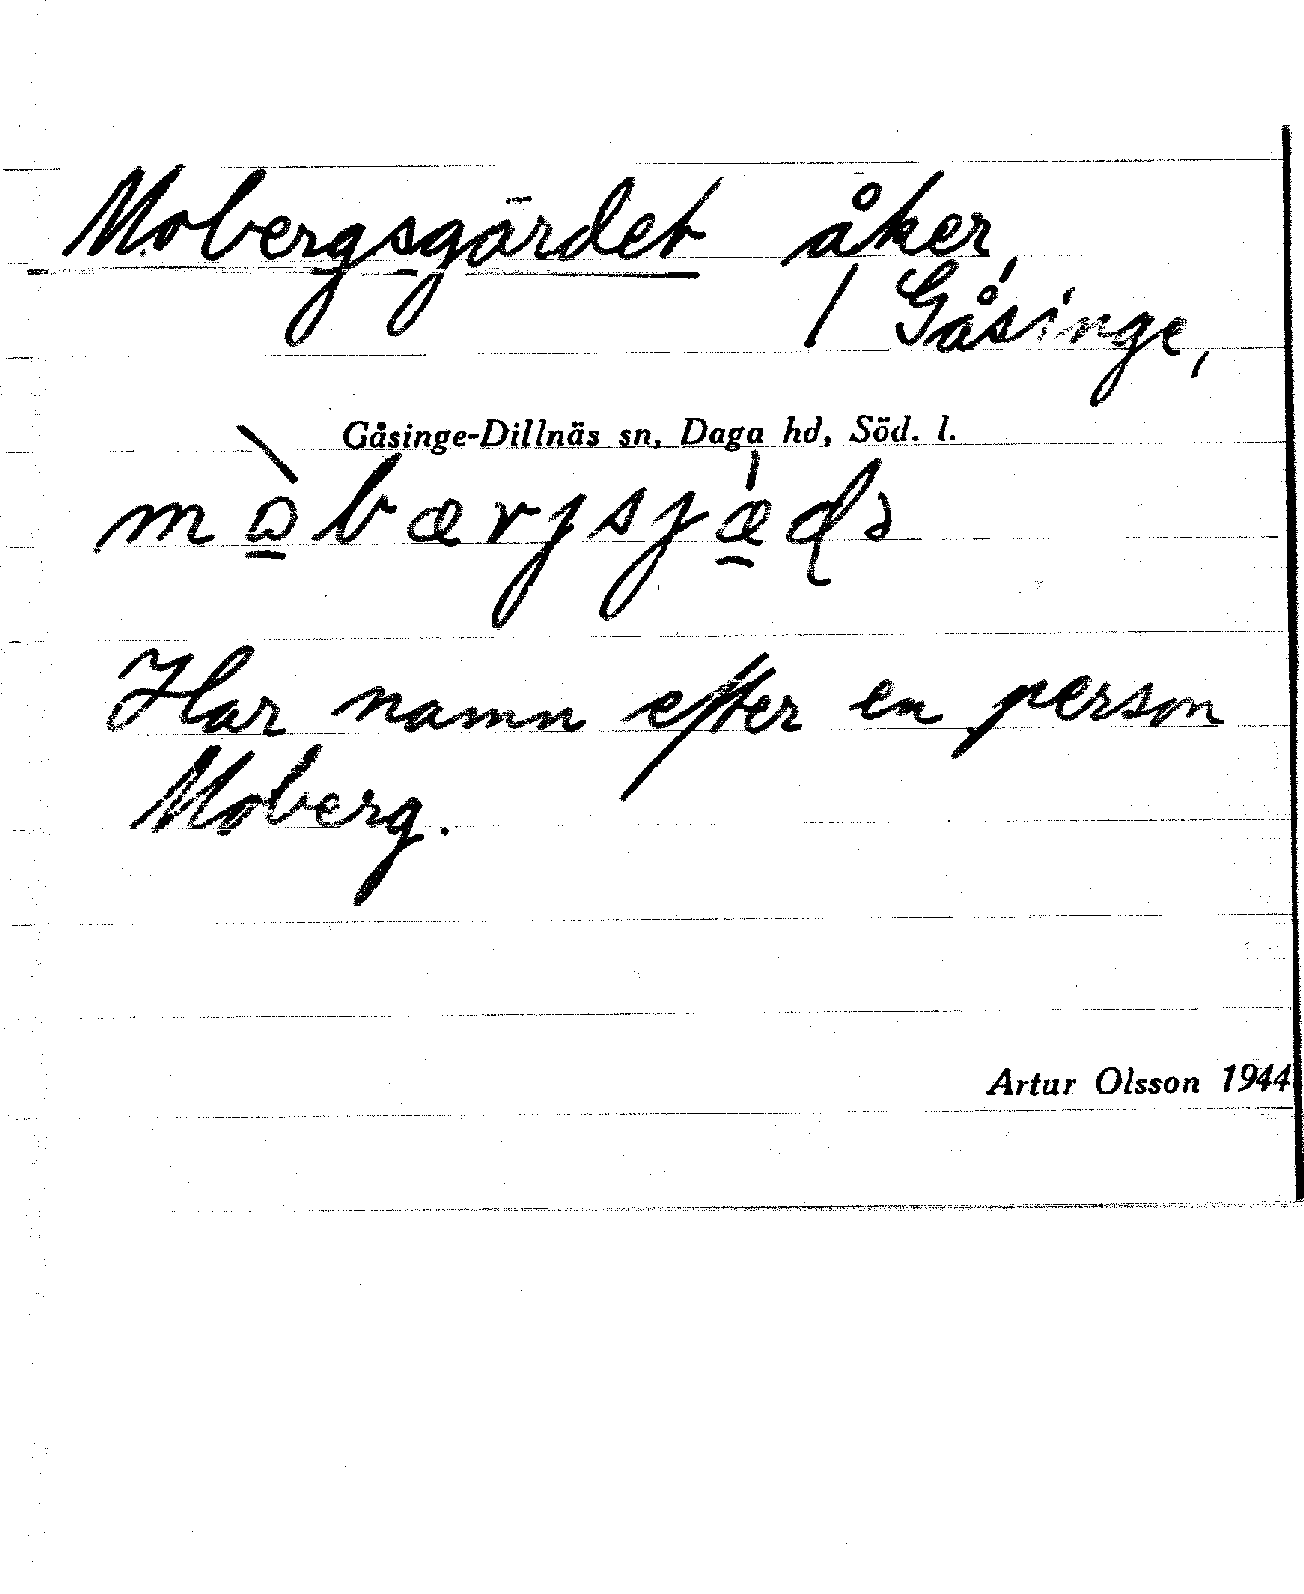 Mobergsgärdet åker,
/ Gåsinge,
Gåsinge-Dillnäs sn, Daga hd, Söd. l.
Har namn efter en person
Moberg.
Artur Olsson 1944